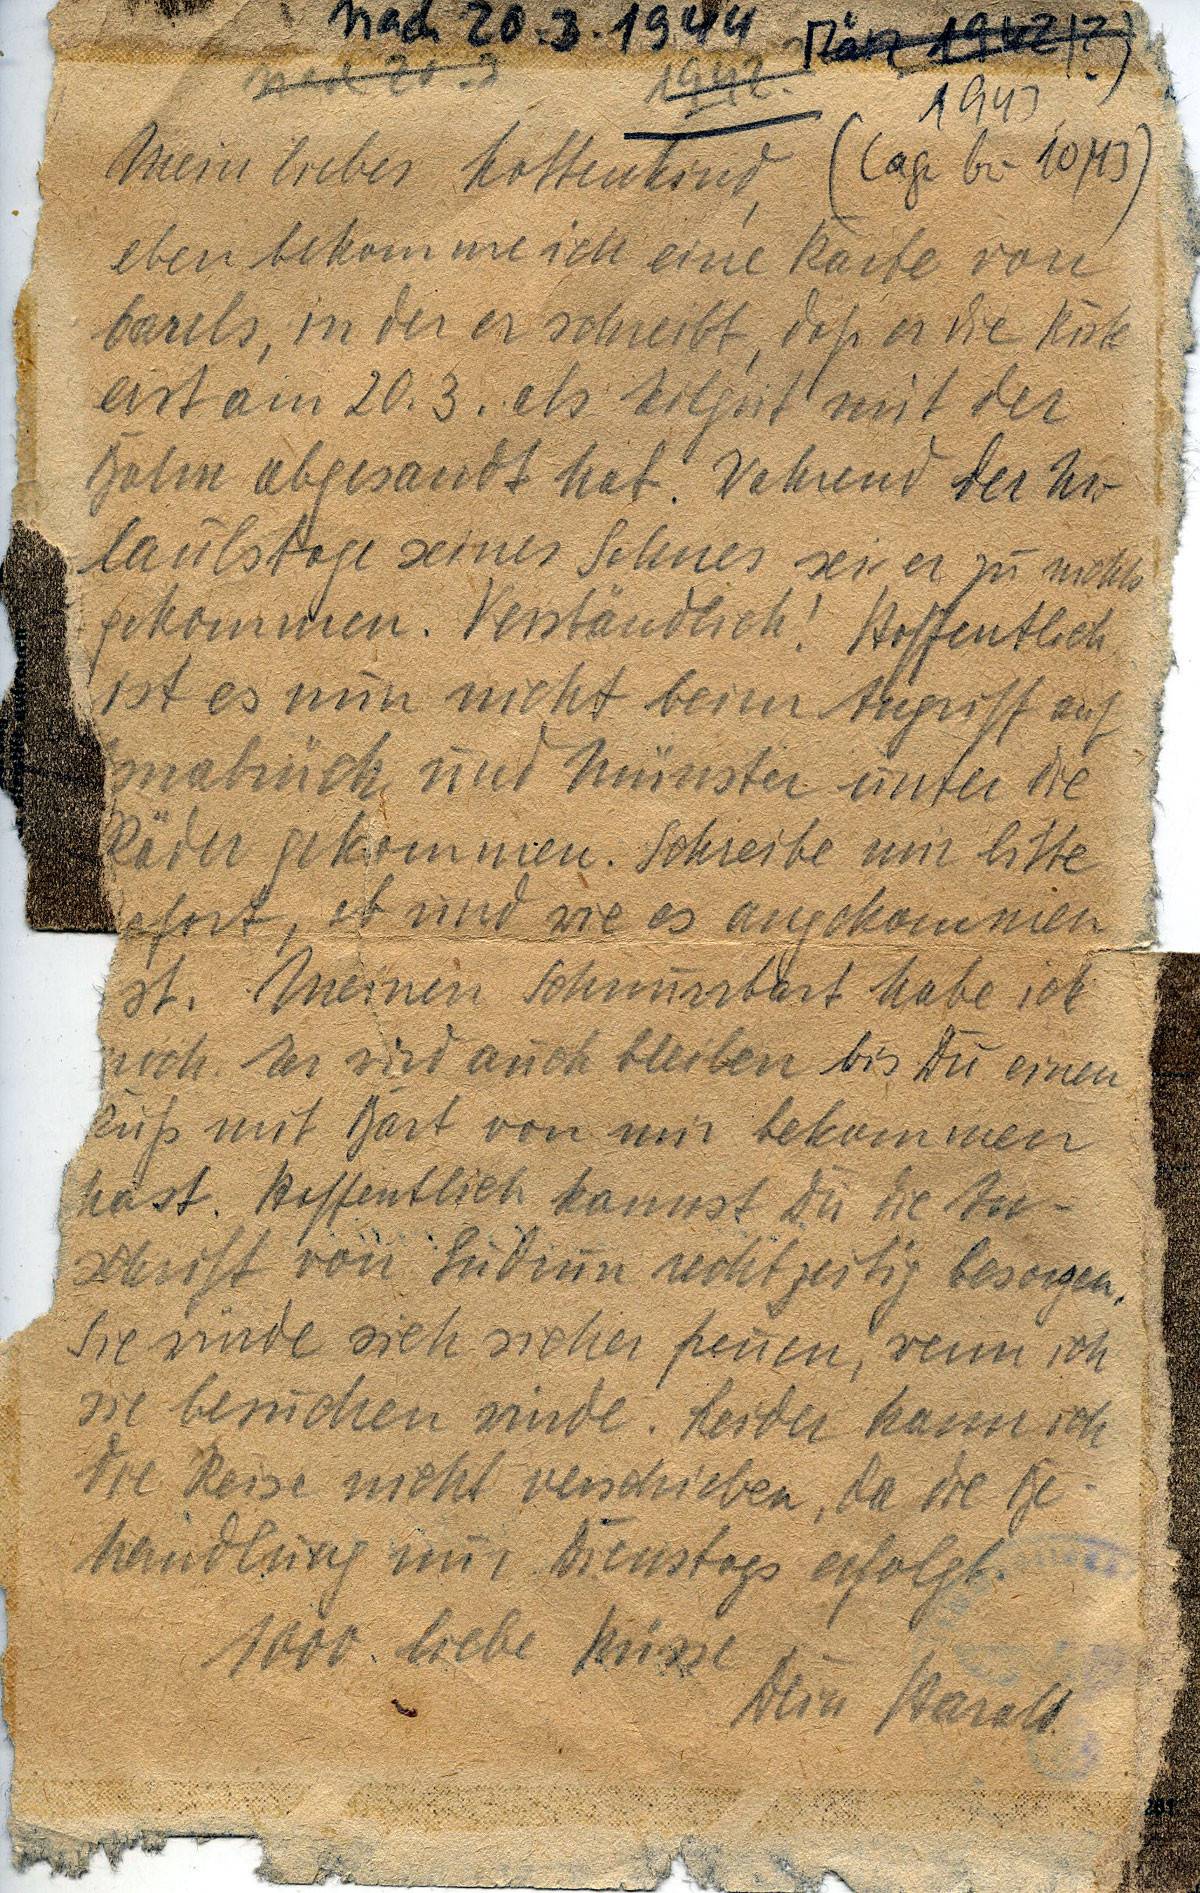 nach 20.3.1944 März 1942(?)
nach 20.3 1942.
1943
(lag bei 10/43)
Mein liebes Kottenkind,
eben bekomme ich eine Karte von
Barels, in der er schreibt, daß er die Kiste
erst am 20.3. als Eilgut mit der
Bahn abgesandt hat. Während der Ur-
laubstage seines Sohnes sei er zu nichts
gekommen. Verständlich! Hoffentlich
ist es nun nicht beim Angriff auf
snabrück und Münster unter die
Räder gekommen. Schreibe mir bitte
ofort, ob und wie es angekommen
st. Meinen Schnurrbart habe ich
noch. Er wird auch bleiben bis Du einen
Kuß mit Bart von mir bekommen
hast. Hoffentlich kannst Du die An-
schrift von Gudrun rechtzeitig besorgen.
Sie würde sich sicher freuen, wenn ich
sie besuchen würde. Leider kann ich
die Reise nicht verschieben, da die Be-
handlung nur Dienstags erfolgt.
1000 liebe Küsse
Dein Harald.